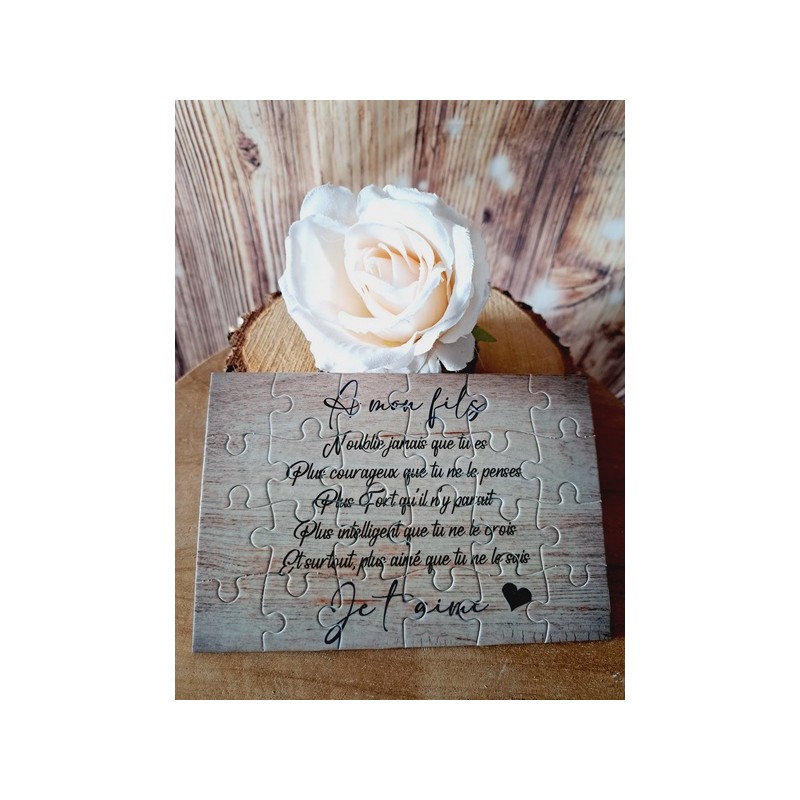 A mon fils
N'oublie jamais que tu es
Plus courageux que tu ne le penses
Plus Fort qu'il n'y parait
Plus intelligent que tu ne le crois
Et surtout, plus aimé que tu ne le sais
Je t'aime